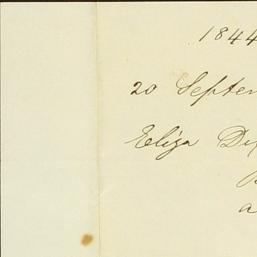 1844
20 Septem
Eliza De
a